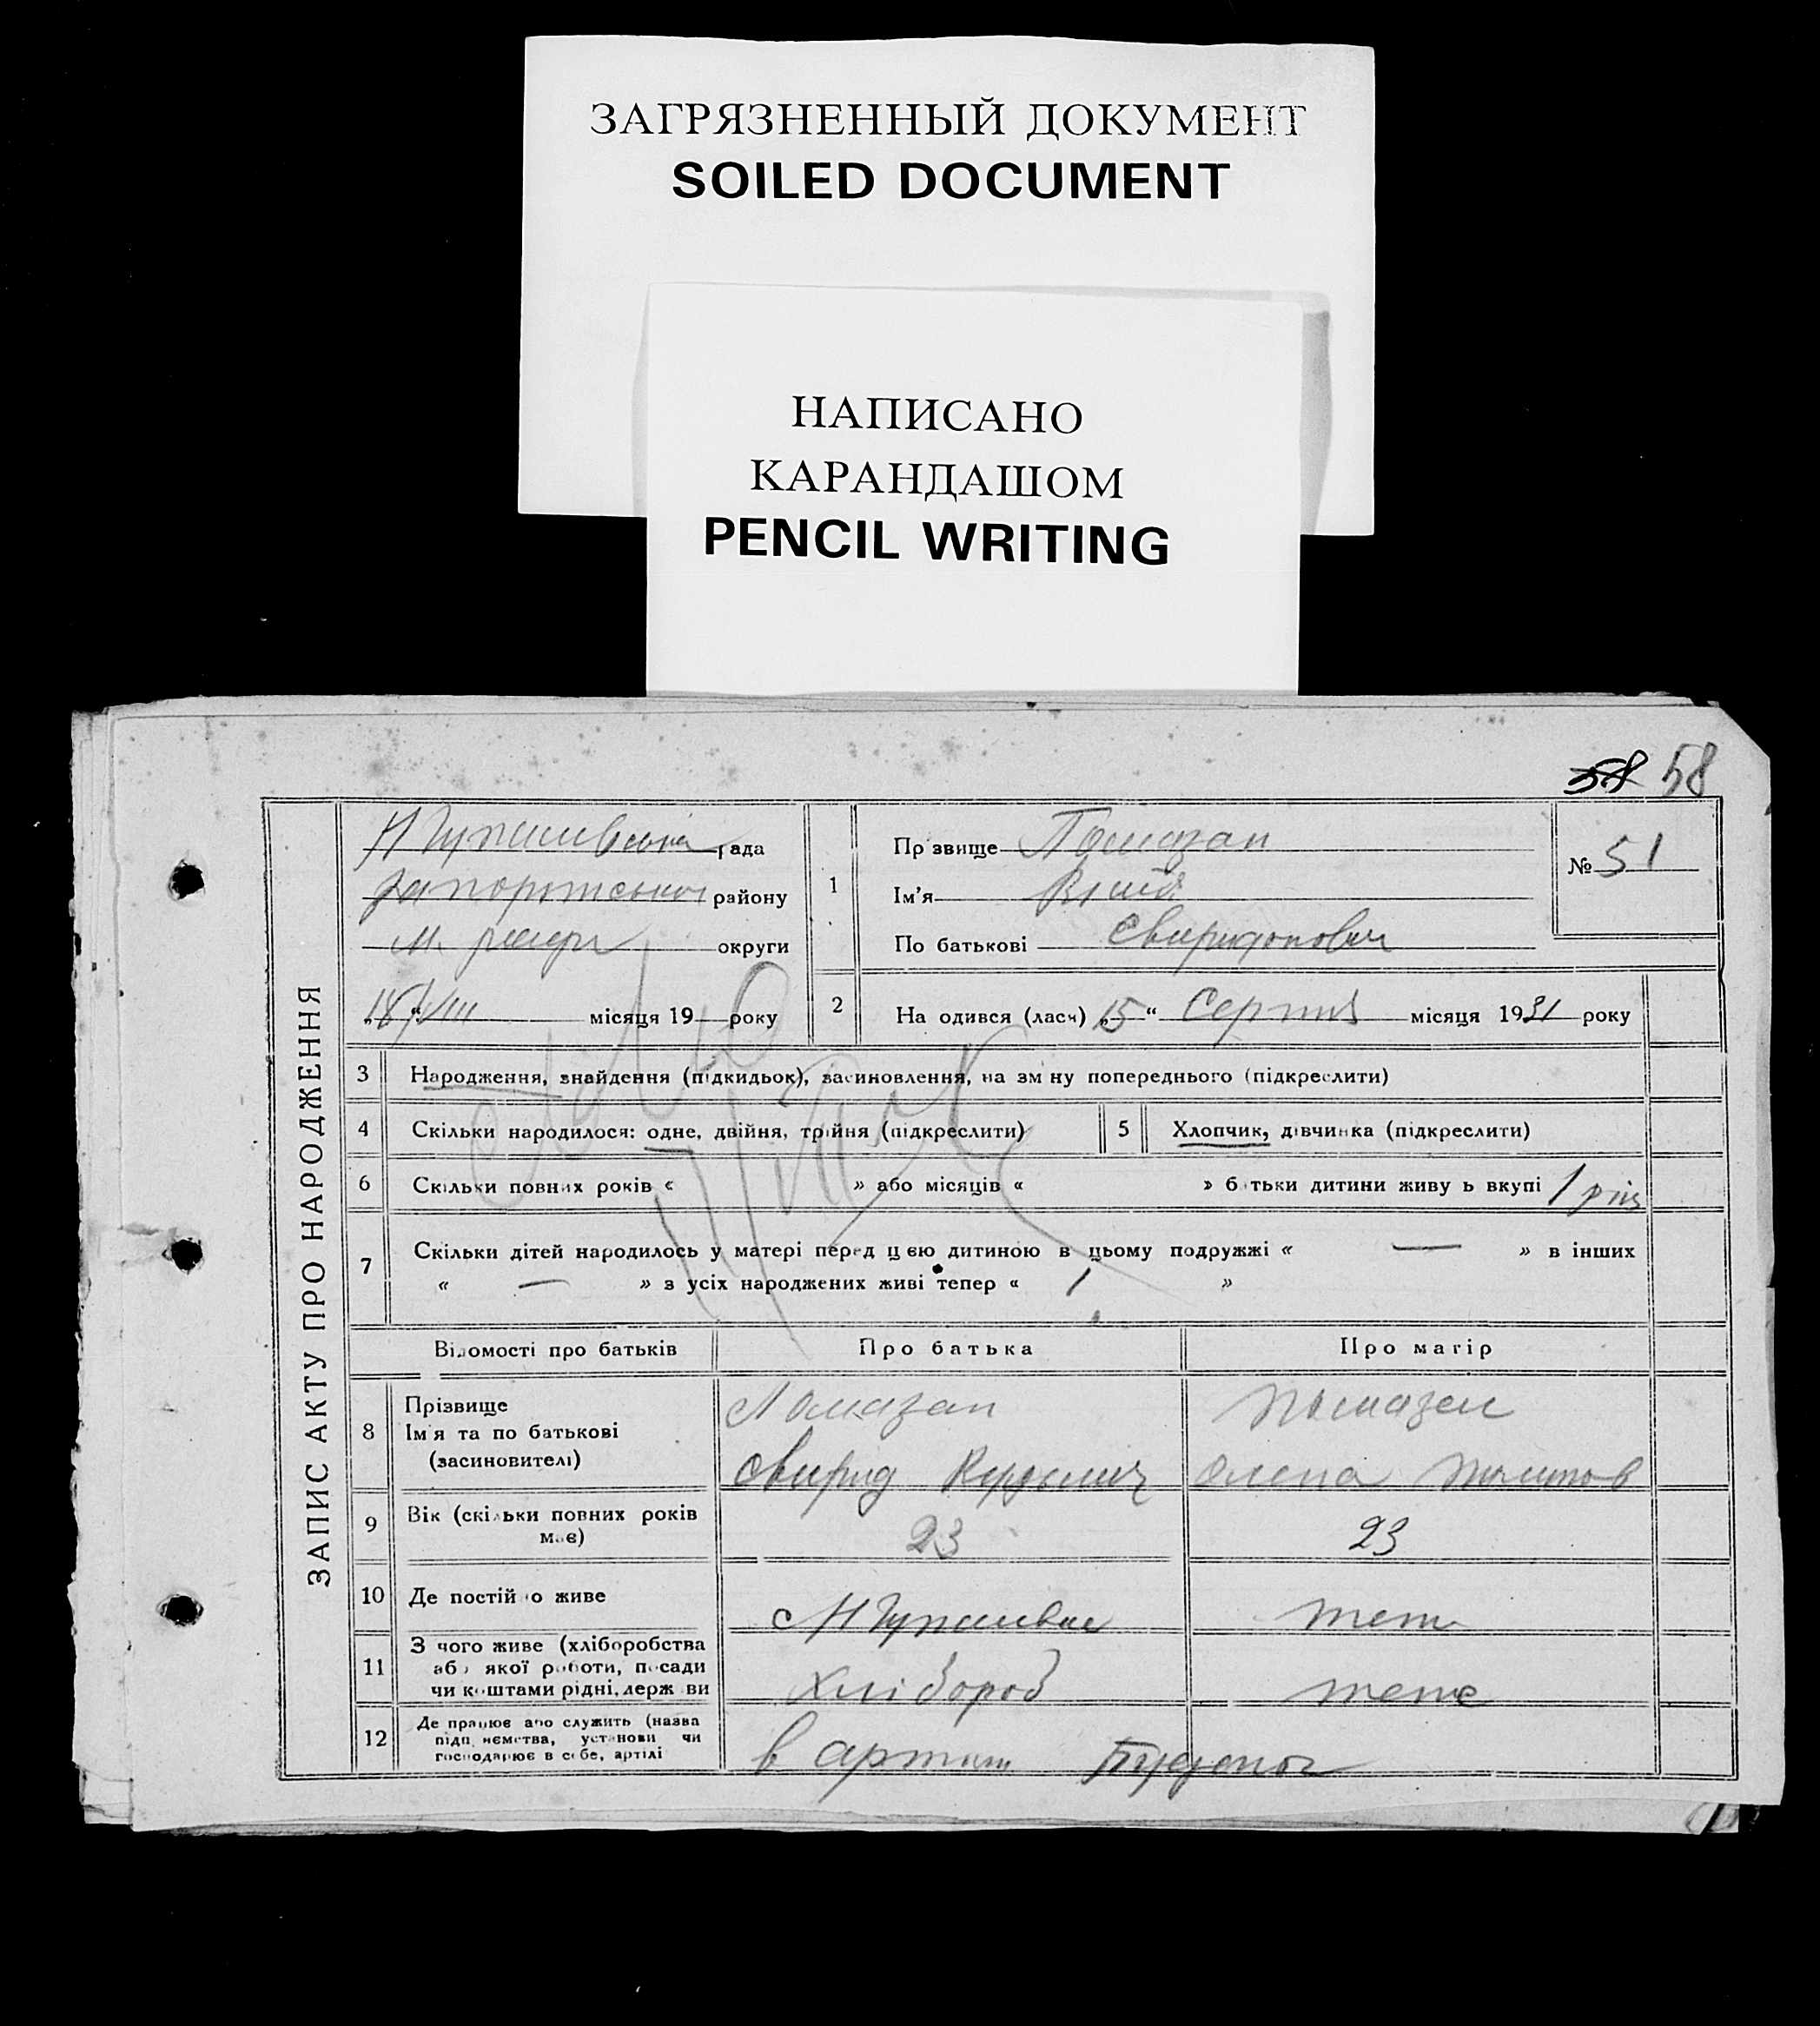 ЗАГРЯЗНЕННЫЙ ДОКУМЕНТ
SOILED DOCUMENT
НАПИСАНО
КАРАНДАШОМ
PENCIL WRITING
58 58
ЗАПИС АКТУ ПРО НАРОДЖЕННЯ
рада
району
округи
„18/VIII місяця 19 року
1
Прізвище Помазан
Ім'я
По батькові Свиридонович
№ 51
2 На одився (лась) „15“ Серпня місяця 1931 року
3 Народження, знайдення (підкидьок), засиновлення, на зміну попереднього (підкреслити)
4 Скільки народилося: одне, двійня, трійня (підкреслити)
5 Хлопчик, дівчинка (підкреслити)
6 Скільки повних років « » або місяців « » батьки дитини живуть вкупі 1 рік
7 Скільки дітей народилось у матері перед цією дитиною в цьому подружжі « — » в інших
« — » з усіх народжених живі тепер « 1 »
Відомості про батьків Про батька Про матір
8 Прізвище
Ім'я та по батькові
(засиновителі)
Помазан Помазан
Свирид Олена
9 Вік (скільки повних років
має)
23 23
10 Де постійно живе
с теж
11 З чого живе (хліборобства
або якої роботи, посади
чи коштами рідні, держави
Хлібороб теж
12 Де працює або служить (назва
підприємства, установи чи
господарює в себе, артілі
в артили